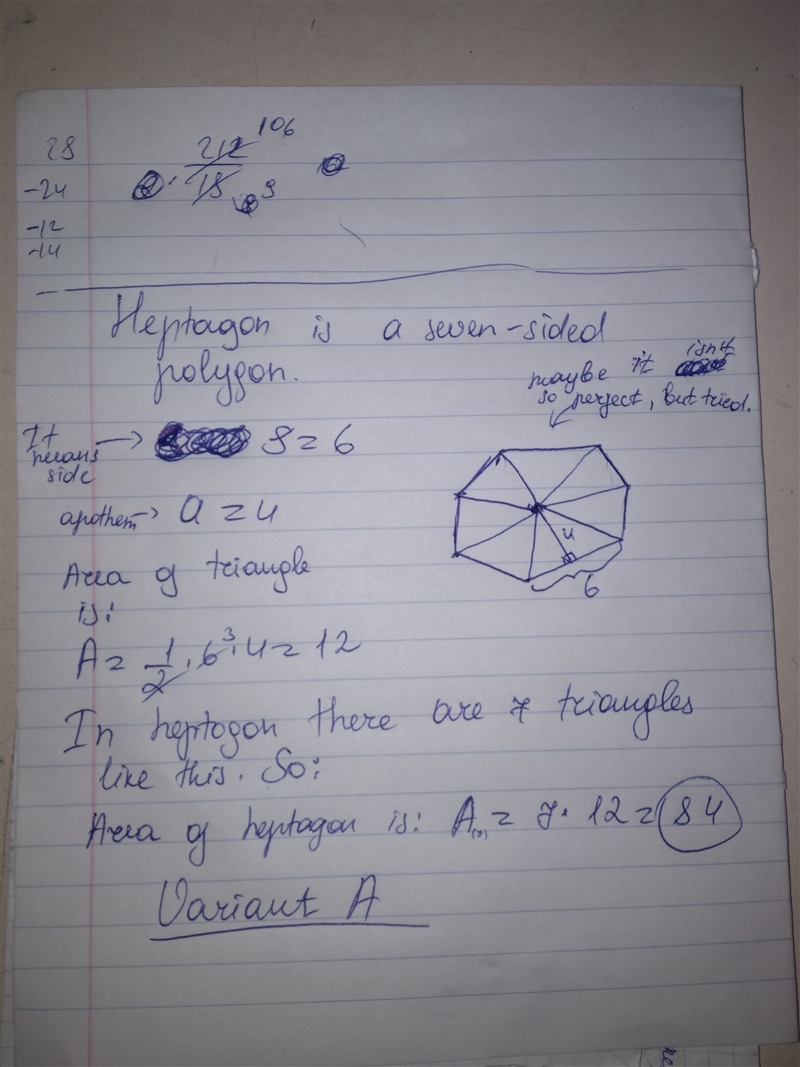 28
-24
-12
-14
212 106
18 9
Heptagon is a seven-sided
polygon.
maybe it isn't
so perfect, but tried.
It
means → S = 6
side
apothem → a = 4
4
6
Area of triangle
is:
A = 1/2 · 6 3 · 4 = 12
In heptogon there are 7 triangles
like this. So:
Area of heptagon is: A(7) = 7 · 12 = 84
Variant A